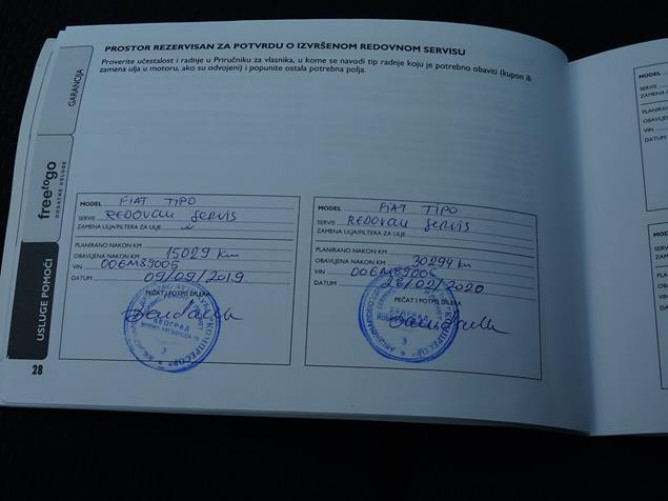 PROSTOR REZERVISAN ZA POTVRDU O IZVRŠENOM REDOVNOM SERVISU
Proverite učestalost i radnje u Priručniku za vlasnika, u kome se navodi tip radnje koju je potrebno obaviti (kupon ili
zamena ulja u motoru, ako su odvojeni) i popunite ostala potrebna polja.
GARANCIJA
freetogo
DODATNE USLUGE
USLUGE POMOĆI
MODEL FIAT TIPO
SERVIS REDOVAN SERVIS
ZAMENA ULJA/FILTERA ZA ULJE
PLANIRANO NAKON KM
OBAVLJENA NAKON KM 15029 km
VIN 006M89005
DATUM 09/09/2019
PEČAT I POTPIS DILERA
БЕОГРАД
3
MODEL FIAT TIPO
SERVIS REDOVAN SERVIS
ZAMENA ULJA/FILTERA ZA ULJE
PLANIRANO NAKON KM
OBAVLJENA NAKON KM 30294 km
VIN 006M89005
DATUM 26/02/2020
PEČAT I POTPIS DILERA
БЕОГРАД
3
28
MODEL
SERVIS
VIN
DATUM